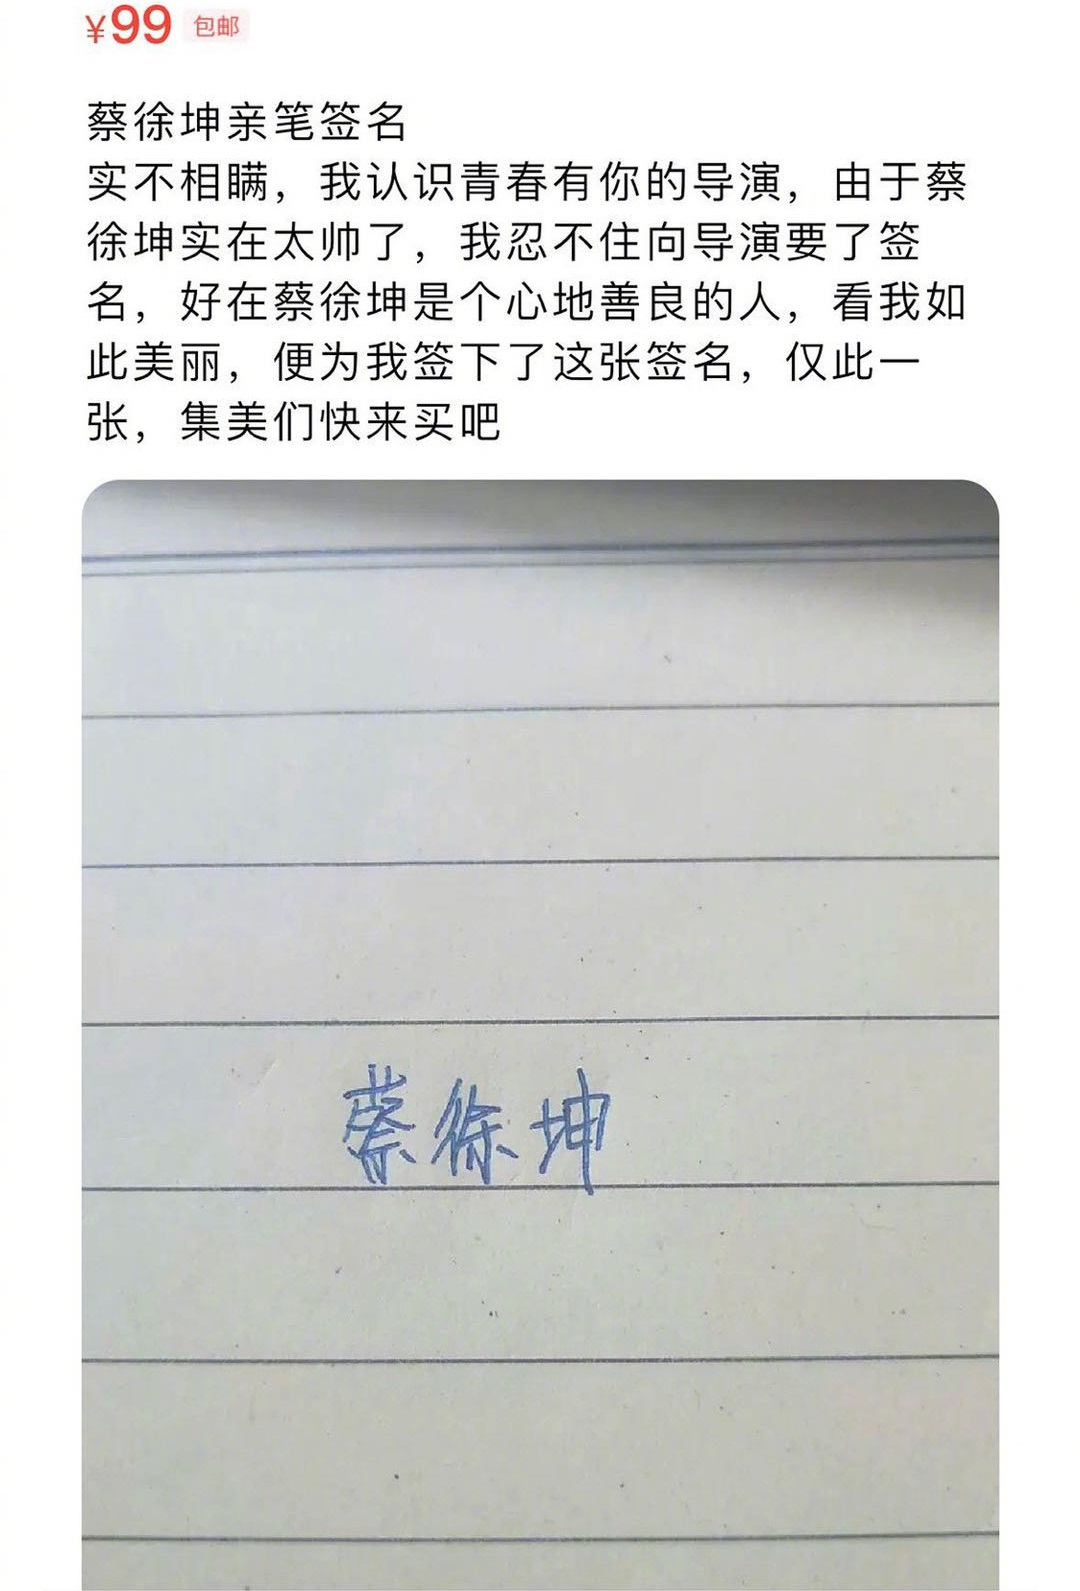 ¥99 包邮
蔡徐坤亲笔签名
实不相瞒，我认识青春有你的导演，由于蔡
徐坤实在太帅了，我忍不住向导演要了签
名，好在蔡徐坤是个心地善良的人，看我如
此美丽，便为我签下了这张签名，仅此一
张，集美们快来买吧
蔡徐坤